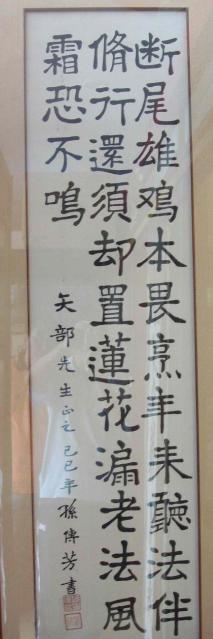 断尾雄鸡本畏烹年来聽法伴
脩行還須却置蓮花漏老法風
霜恐不鳴
矢部先生正之 己巳年 孫傳芳書